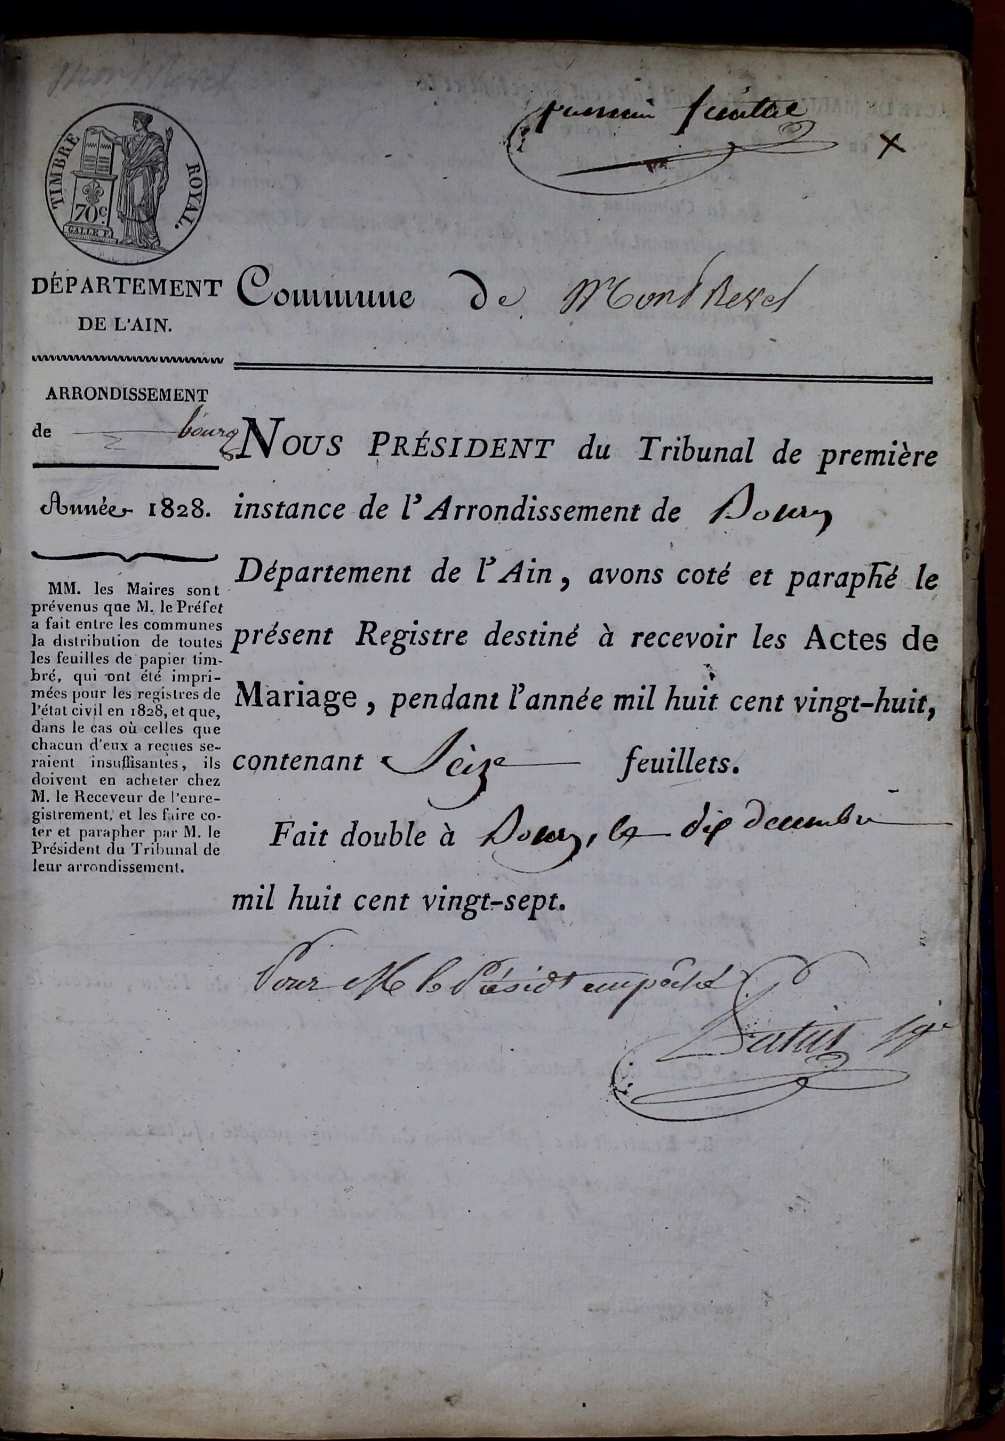 Mont Revel
premier feuillet
X
TIMBRE ROYAL.
70c
GALLE F.
DÉPARTEMENT
DE L'AIN.
Commune de Mont Revel
ARRONDISSEMENT
de bourg
Année 1828.
MM. les Maires sont
prévenus que M. le Préfet
a fait entre les communes
la distribution de toutes
les feuilles de papier tim-
bré, qui ont été impri-
mées pour les registres de
l'état civil en 1828, et que,
dans le cas où celles que
chacun d'eux a reçues se-
raient insuffisantes, ils
doivent en acheter chez
M. le Receveur de l'enre-
gistrement, et les faire co-
ter et parapher par M. le
Président du Tribunal de
leur arrondissement.
NOUS PRÉSIDENT du Tribunal de première
instance de l'Arrondissement de Bourg
Département de l'Ain, avons coté et paraphé le
présent Registre destiné à recevoir les Actes de
Mariage, pendant l'année mil huit cent vingt-huit,
contenant Sèize feuillets.
Fait double à Bourg, le dix decembre
mil huit cent vingt-sept.
Pour M le Présidt empêché